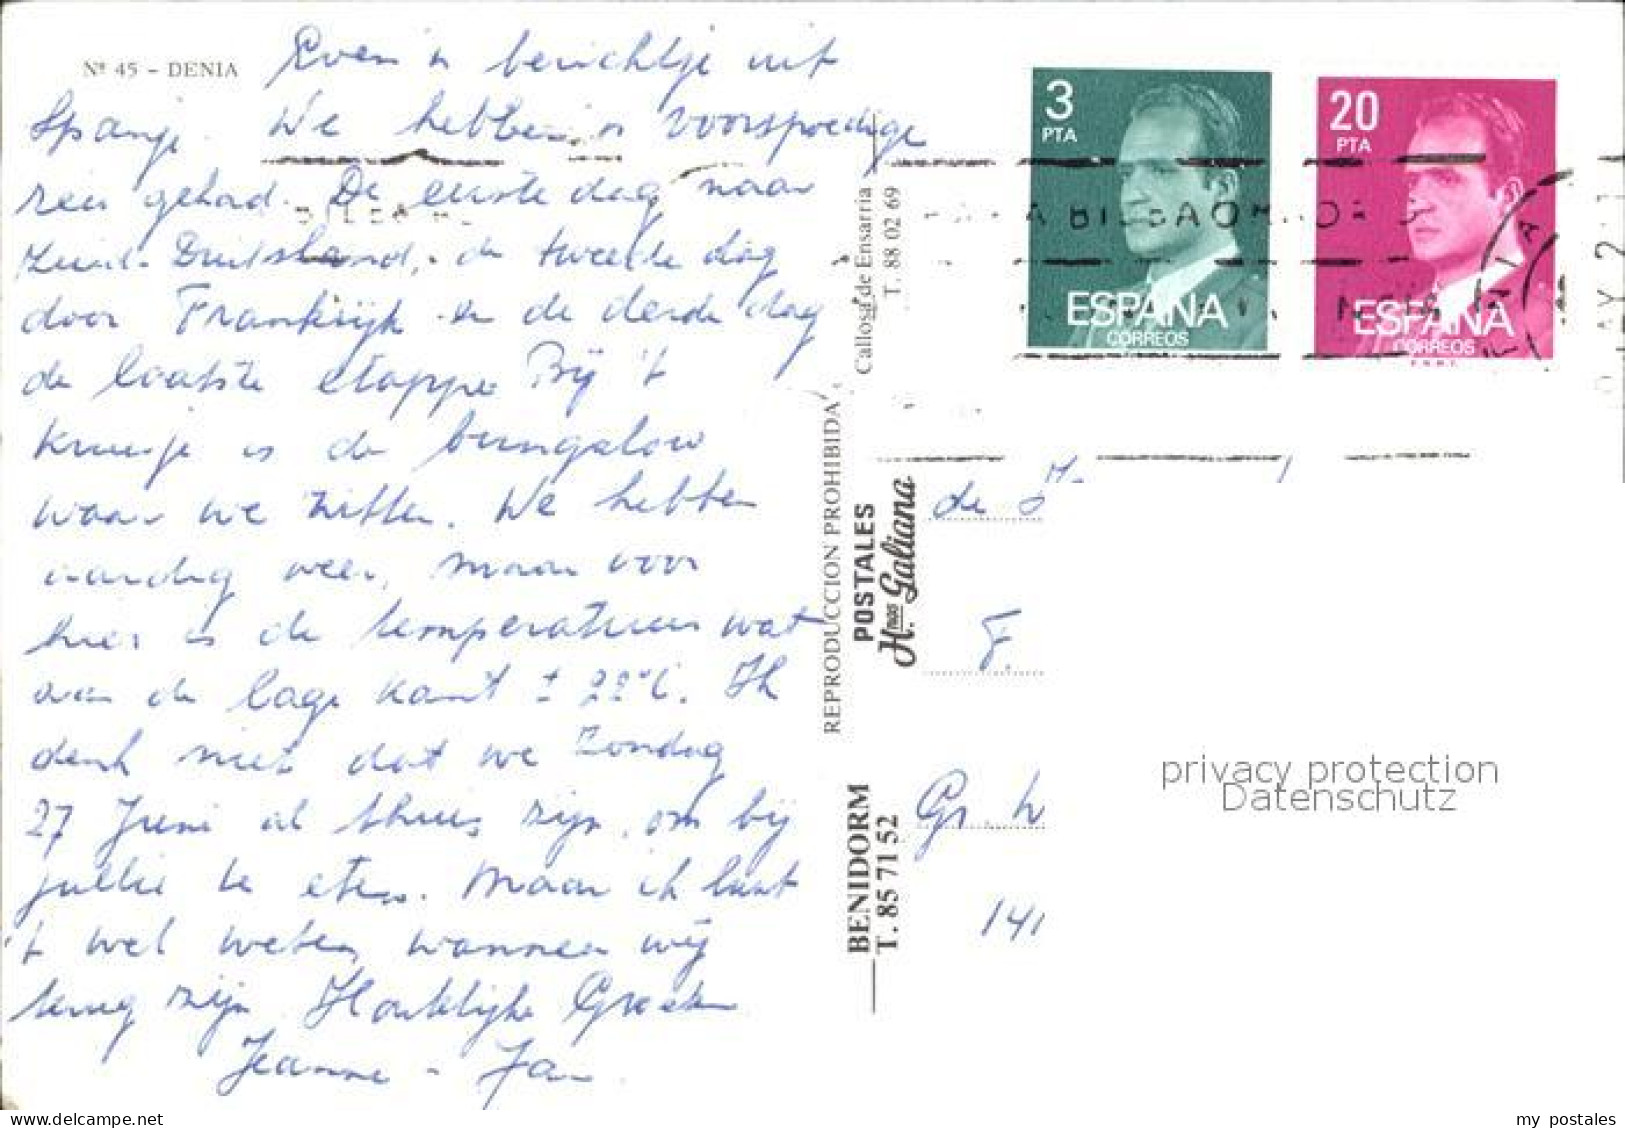 Nº 45 – DENIA
Even 'n berichtje uit
Spanje. We hebben 'n voorspoedige
reis gehad. De eerste dag naar
Zuid-Duitsland, de tweede dag
door Frankrijk en de derde dag
de laatste etappe. Bij 't
kruisje is de bungalow
waar we zitten. We hebben
aardig weer, maar voor
hier is de temperatuur wat
aan de lage kant ± 22°C. Ik
denk niet dat we zondag
27 Juni al thuis zijn, om bij
jullie te eten. Maar ik laat
't wel weten wanneer wij
terug zijn. Hartelijke Groeten
Jeanne - Jan
REPRODUCCION PROHIBIDA
Callosa de Ensarria
T. 88 02 69
POSTALES
Hnas Galiana
BENIDORM
T. 85 71 52
3
PTA
ESPAÑA
CORREOS
20
PTA
ESPAÑA
CORREOS
F.N.M.T.
BILBAO
de
F.
Gr.
141
privacy protection
Datenschutz
my postales